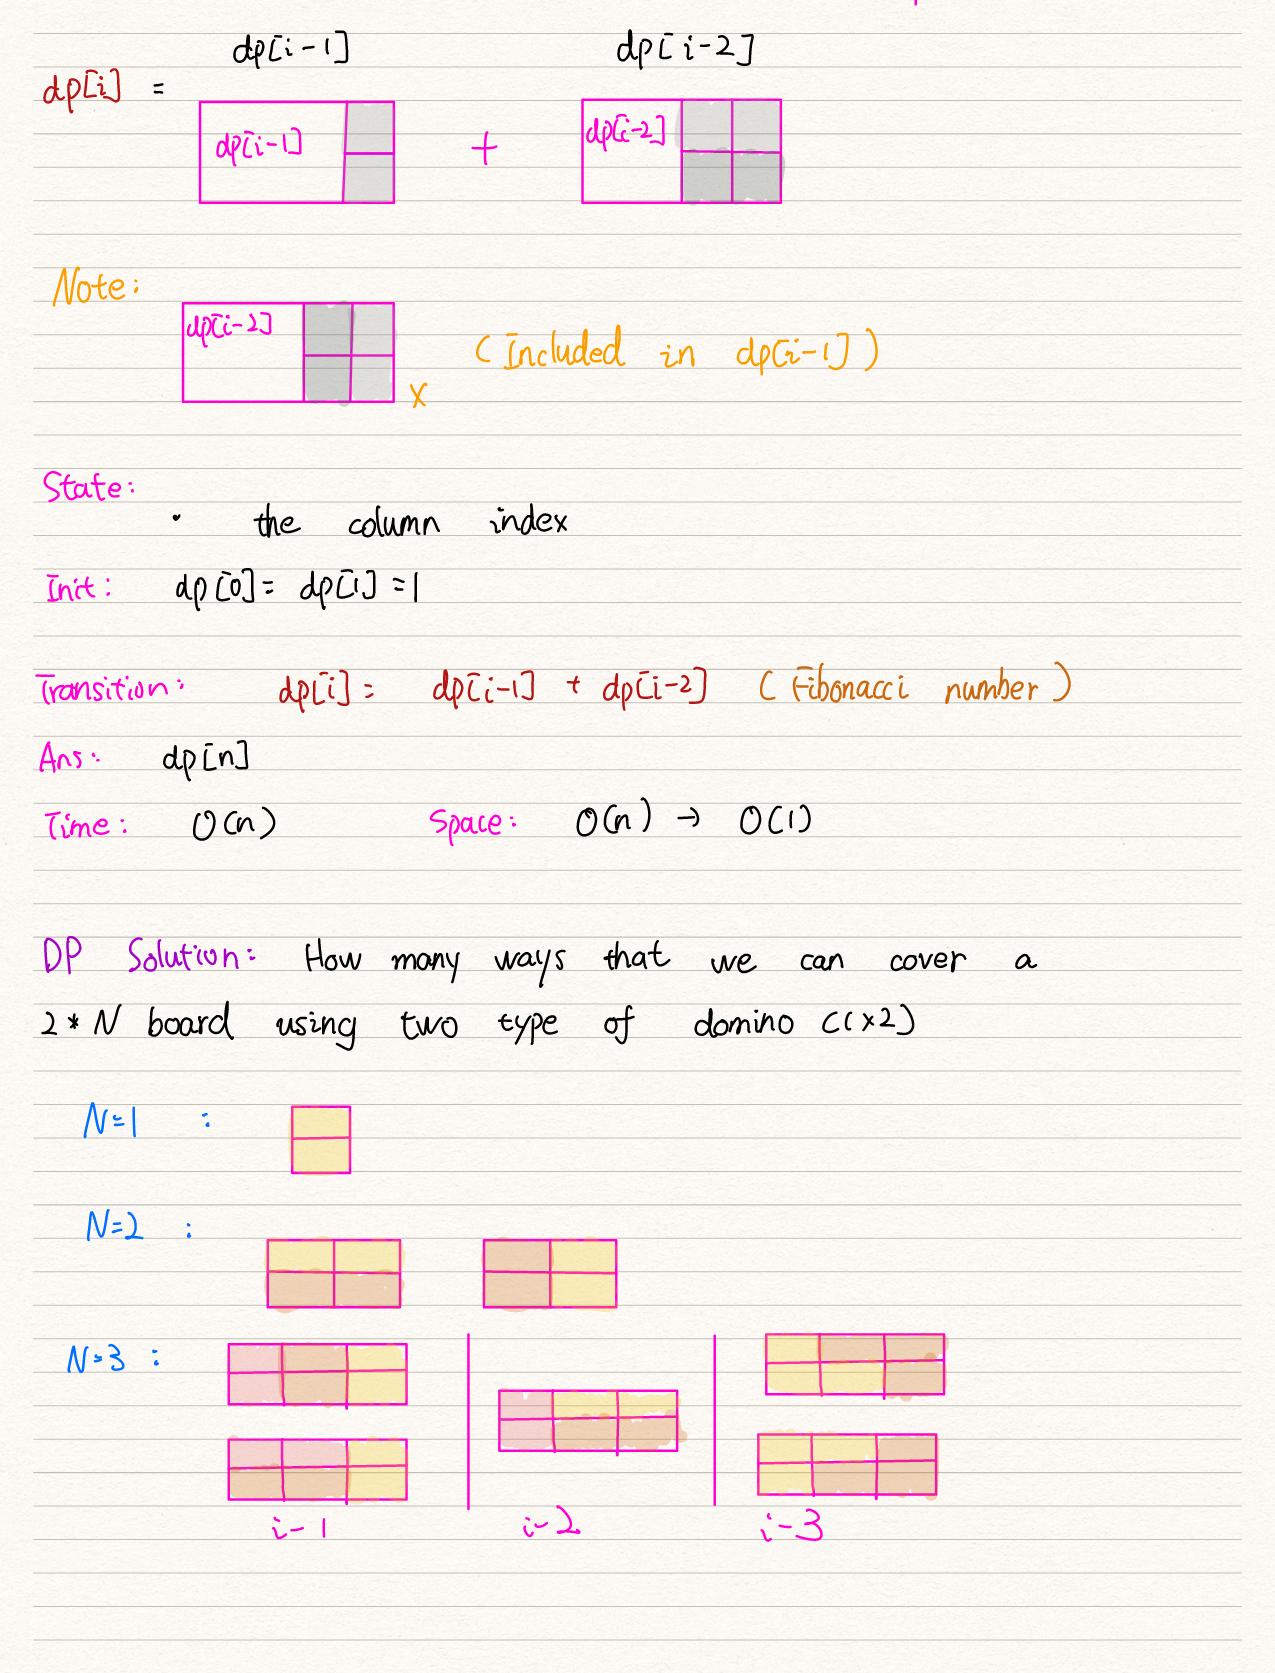 dp[i-1] dp[i-2]
dp[i] =
dp[i-1] + dp[i-2]
Note:
dp[i-2] (Included in dp[i-1])
x
State:
· the column index
Init: dp[0]= dp[1] =1
Transition: dp[i]= dp[i-1] + dp[i-2] (Fibonacci number)
Ans: dp[n]
Time: O(n) Space: O(n) → O(1)
DP Solution: How many ways that we can cover a
2*N board using two type of domino (1x2)
N=1 :
N=2 :
N=3 :
i-1 i-2 i-3